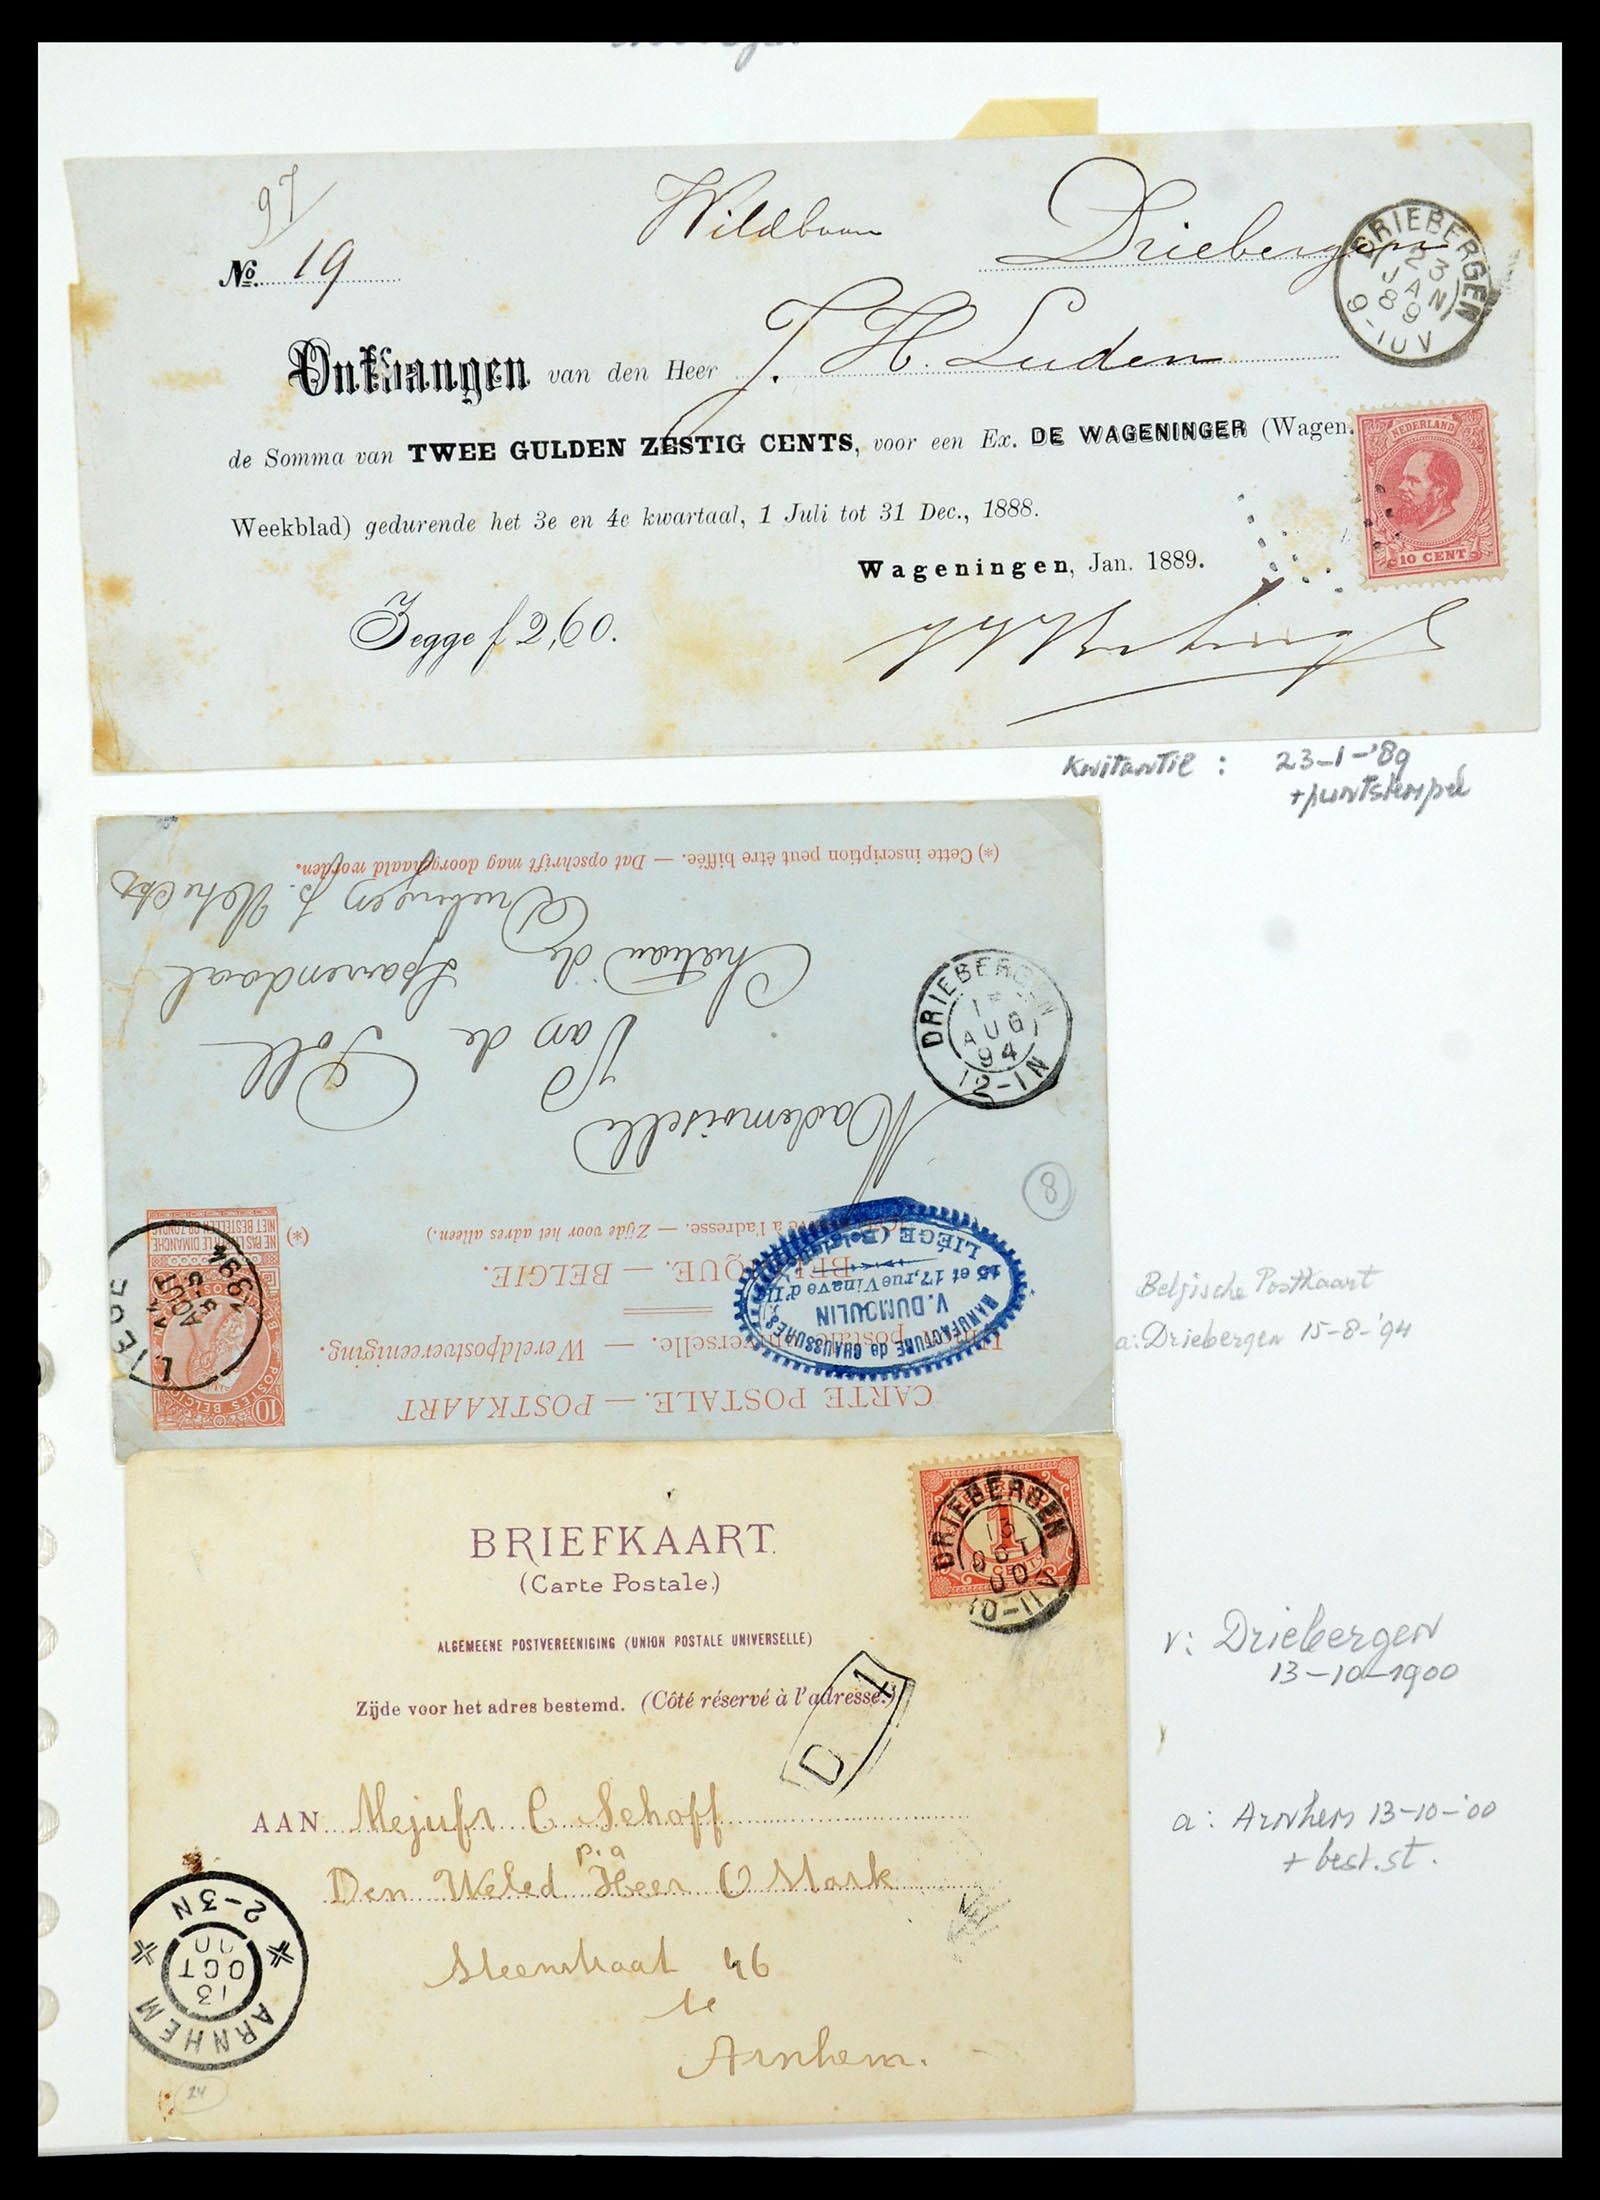 97/
No. 19
Wildbaan
Driebergen
DRIEBERGEN
23
JAN
89
9-10V
Ontvangen van den Heer J. H. Luden
de Somma van TWEE GULDEN ZESTIG CENTS, voor een Ex. DE WAGENINGER (Wagen.
Weekblad) gedurende het 3e en 4e kwartaal, 1 Juli tot 31 Dec., 1888.
NEDERLAND
10 CENT
Wageningen, Jan. 1889.
Zegge f 2,60.
Kwitantie : 23-1-'89
+puntstempel
CARTE POSTALE. — POSTKAART
Union postale universelle. — Wereldpostvereeniging.
BELGIQUE. — BELGIE.
(Côté réservé à l'adresse. — Zijde voor het adres alleen.)
(*)
POSTES BELGIQUE
10
NE PAS LIVRER LE DIMANCHE
NIET BESTELLEN OP ZONDAG
MANUFACTURE de CHAUSSURES
V. DUMOULIN
15 et 17, rue Vinave d'Ile
LIÉGE (Belgique)
8
Mademoiselle
Van de Poll
Chateau de Sparrendaal
Driebergen p. Utrecht
(*) Cette inscription peut être biffée. — Dat opschrift mag doorgehaald worden.
DRIEBERGEN
AUG
94
12-1N
AOUT
1894
Belgische Postkaart
a: Driebergen 15-8-'94
BRIEFKAART.
(Carte Postale.)
ALGEMEENE POSTVEREENIGING (UNION POSTALE UNIVERSELLE)
Zijde voor het adres bestemd. (Côté réservé à l'adresse.)
1
DRIEBERGEN
13
OCT
00
10-11V
D 1
AAN Mejufr C Schoff
p.a
Den Weled Heer O Mark
Steenstraat 46
te
Arnhem.
ARNHEM
13
OCT
00
2-3N
24
v: Driebergen
13-10-1900
a: Arnhem 13-10-'00
+ best. st.